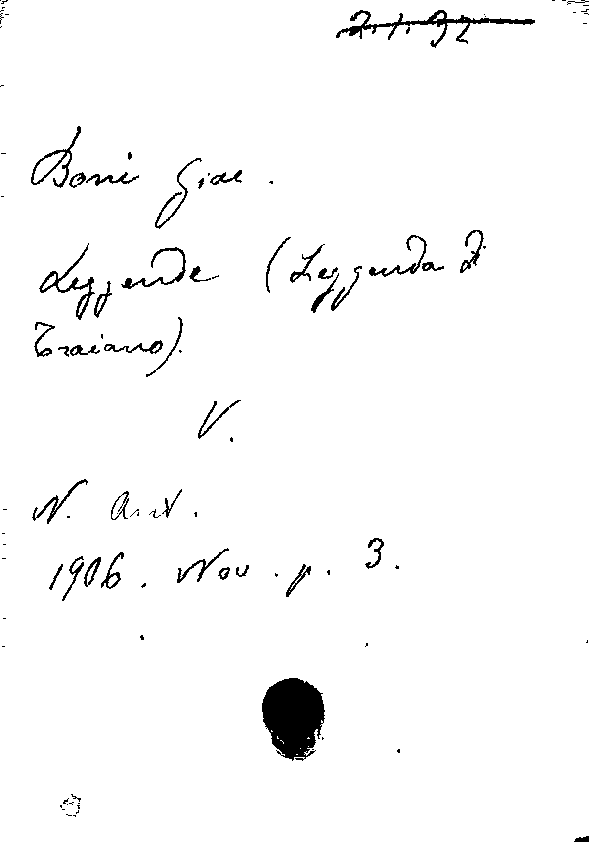 2.1.92
Boni Giac.
Leggende (Leggenda di
Traiano).
V.
N. Ant.
1906. Nov. p. 3.